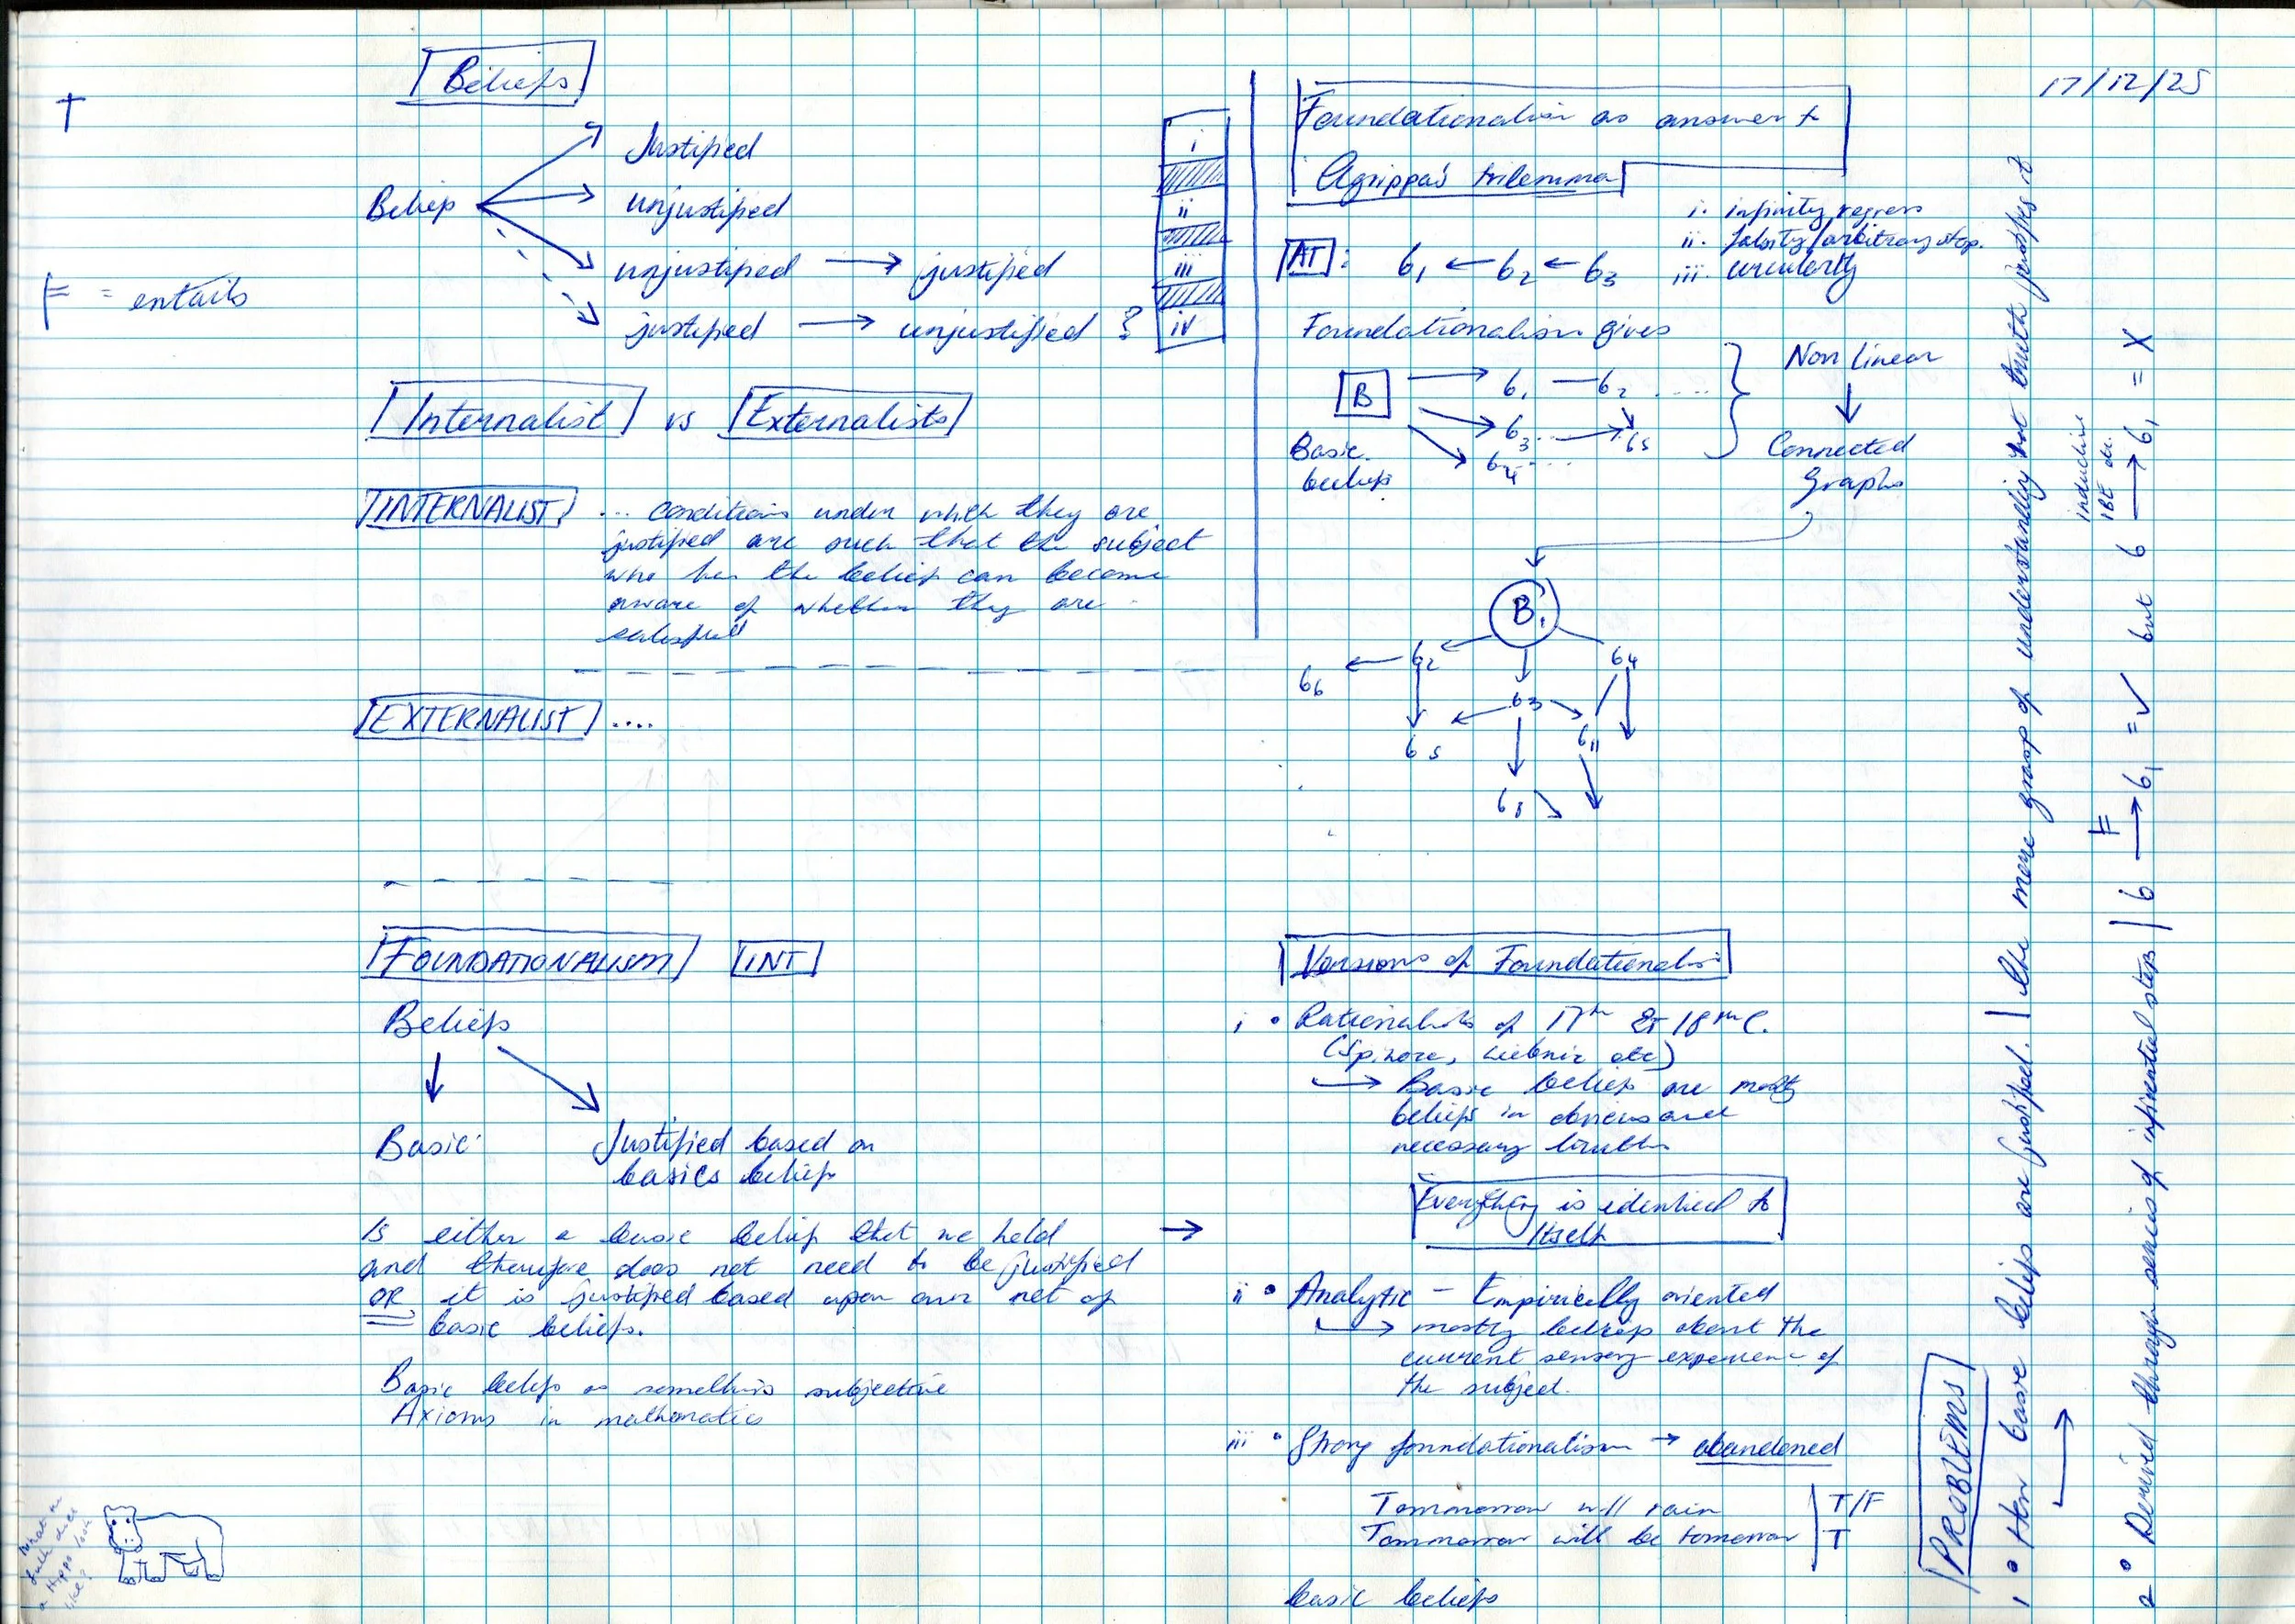 17/12/25
Beliefs
Belief
Justified
unjustified
unjustified → justified
justified → unjustified ?
i
ii
iii
iv
⊨ = entails
Internalist vs Externalists
INTERNALIST ... conditions under which they are
justified are such that the subject
who has the belief can become
aware of whether they are
satisfied
EXTERNALIST ....
FOUNDATIONALISM INT
Beliefs
Basic
Justified based on
basics beliefs
Is either a basic belief that we hold
and therefore does not need to be justified
OR it is justified based upon our net of
basic beliefs.
Basic beliefs as something subjective
Axioms in mathematics
What the
does
a Hippo look
like?
Foundationalism as answer to
Agrippa's trilemma
i. infinity regress
ii. falsity/arbitrary stop.
iii. circularity
AT: b1 ← b2 ← b3
Foundationalism gives
B → b1 — b2 ....
b3 ... → b5
b4 ....
Basic
beliefs
Non linear
↓
Connected
Graphs
B1
b6 ← b2 b4
b3
b5 b11
b8
Versions of Foundationalism
i • Rationalists of 17th & 18th C.
(Spinoza, Leibniz etc)
→ Basic beliefs are mostly
beliefs in obvious and
necessary truths
Everything is identical to
itself
ii • Analytic - Empirically oriented
→ mostly beliefs about the
current sensory experience of
the subject.
iii • Strong foundationalism → abandoned
Tommorrow will rain T/F
Tommorrow will be tomorrow T
basic beliefs
PROBLEMS
1 • How basic beliefs are justified. | the mere grasp of understanding that truth justifies it
→
2 • Derived through series of inferential steps | b ⊨→ b1 = ✓ but b → b1 = X
inductive
IBE